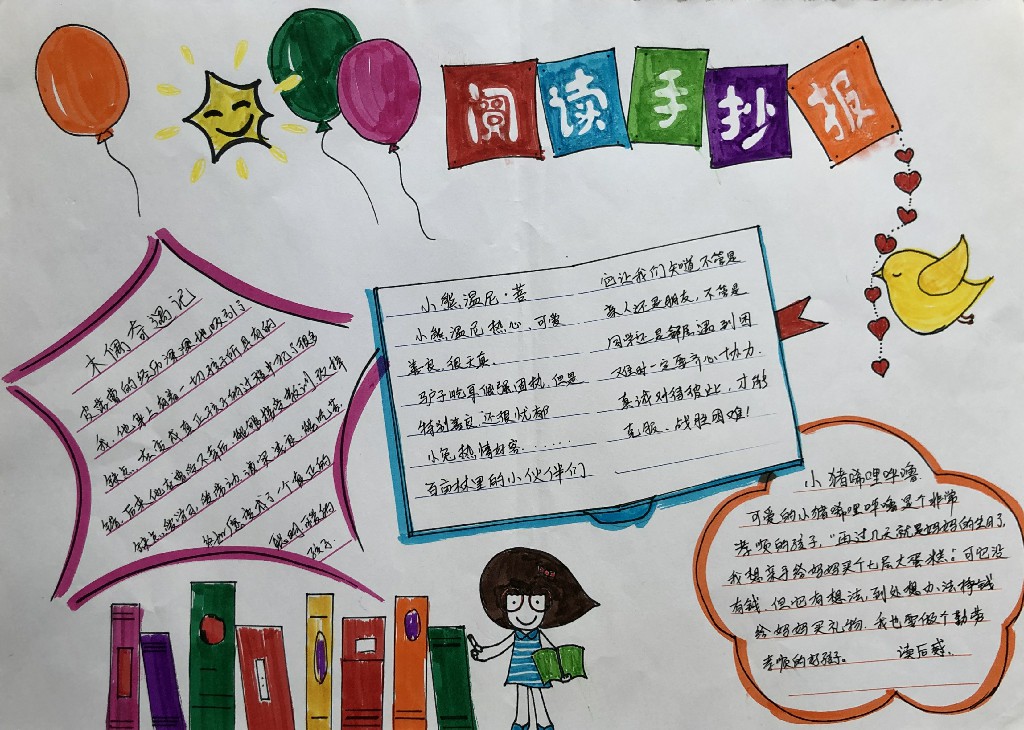 阅读手抄报
木偶奇遇记
皮诺曹的经历深深地吸引了
我,他身上有着一切孩子所具有的
缺点。在变成真正孩子的过程中犯了很多
错,后来他在
缺点、
终如愿变成了一个真正的
聪明可爱的
孩子.
小熊温尼·菩
小熊温尼热心、可爱
善良、很天真.
驴子屹耳倔强固执,但是
特别善良,还很忧郁
小兔热情好客.......
百亩林里的小伙伴们
它让我们知道不管是
家人还是朋友,不管是
同学还是邻居遇到困
难时一定要齐心协力.
真诚对待彼此,才能
克服、战胜困难!
小猪唏哩呼噜
可爱的小猪唏哩呼噜是个非常
孝顺的孩子,"再过几天就是妈妈的生日了,
我想亲手给妈妈买个七层大蛋糕.可它没
有钱.但它有想法,到处想办法挣钱
给妈妈买礼物.我也要做个勤劳
孝顺的好孩子。 读后感.